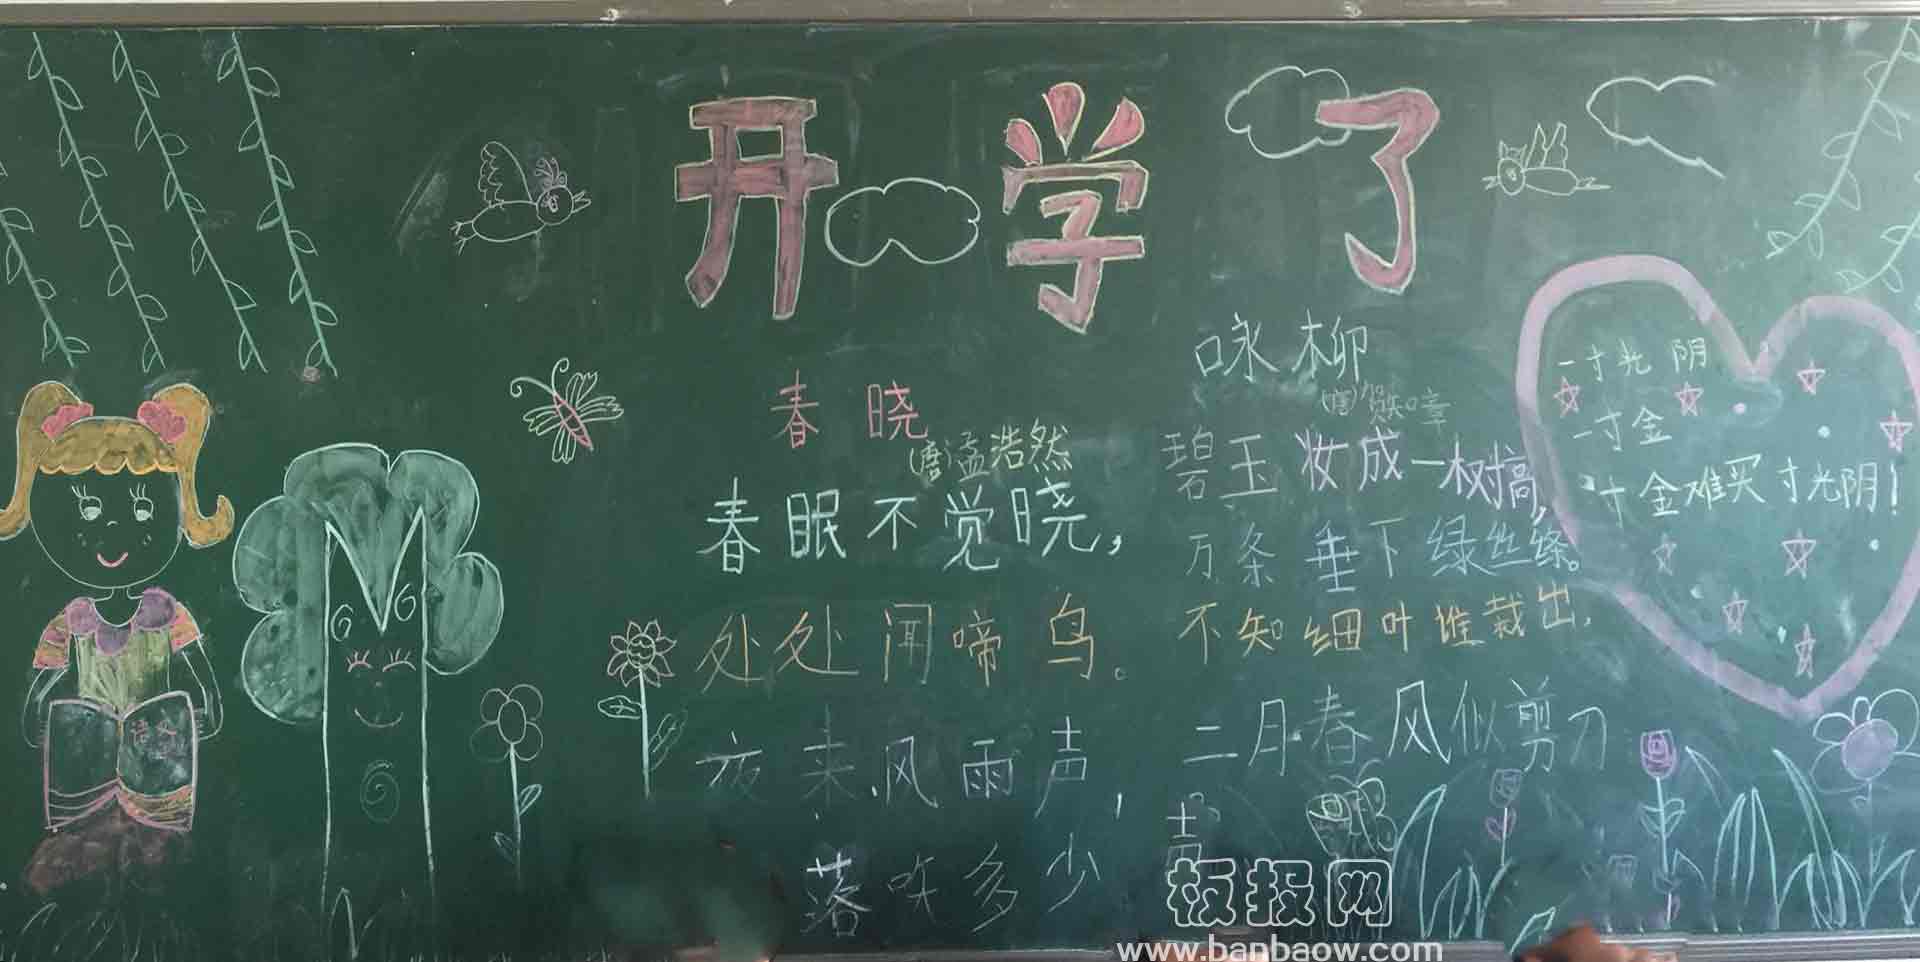 开学了
春晓
(唐)孟浩然
春眠不觉晓，
处处闻啼鸟。
夜来风雨声，
落吹多少
咏柳
(唐)贺知章
碧玉妆成一树搞，
万条垂下绿丝绦。
不知细叶谁裁出，
二月春风似剪刀
一寸光阴
一寸金
寸金难买寸光阴！
语文
板报网
www.banbaow.com